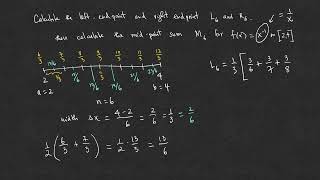 Calculate the left-endpoint and right endpoint L₆ and R₆.
then calculate the mid-point sum M₆ for f(x) = x⁻¹ in [2,4]
= 1/x
6/3 7/3 8/3 9/3 10/3 11/3 12/3
2 4
a = 2 b = 4
n = 6
width Δx = (4-2)/6 = 2/6 = 1/3 = 2/6
1/2 (6/3 + 7/3) = 1/2 · 13/3 = 13/6
L₆ = 1/3 [ 3/6 + 3/7 + 3/8